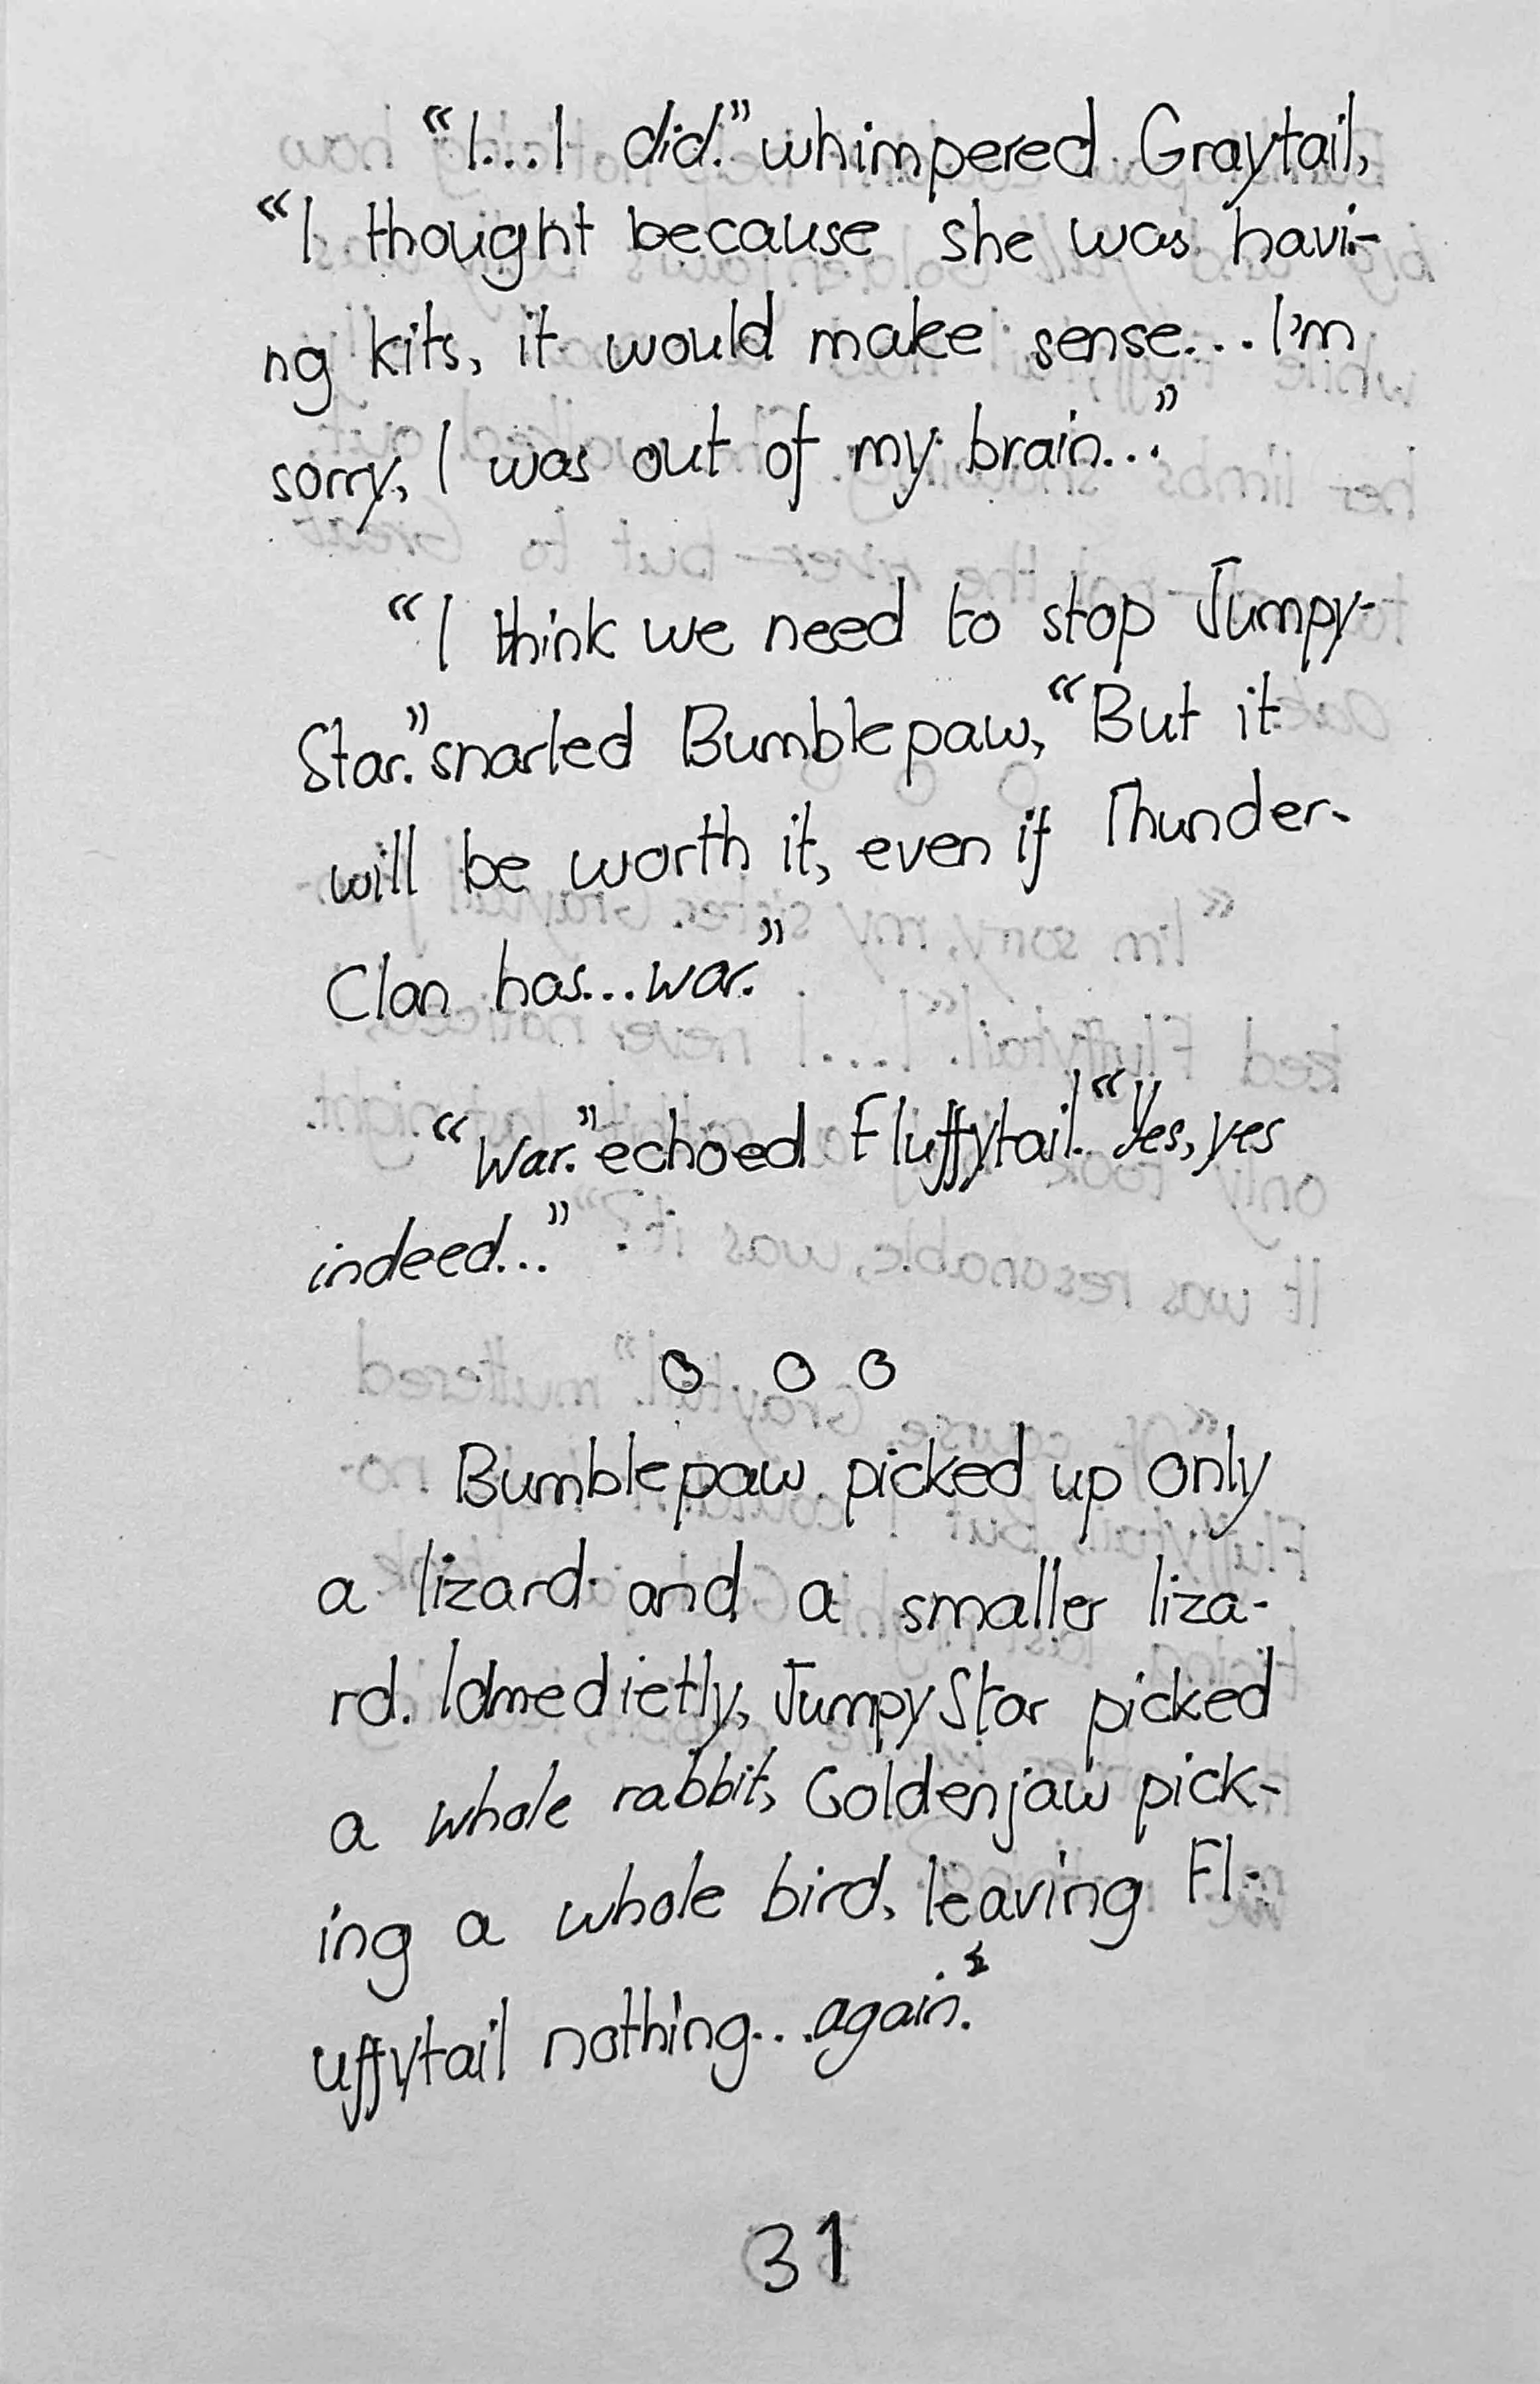 “I...I did.” whimpered Graytail,
“I thought because she was havi-
ng kits, it would make sense... I'm
sorry, I was out of my brain...”
“I think we need to stop Jumpy-
Star.” snarled Bumblepaw, “But it
will be worth it, even if Thunder-
Clan has...war.”
“War.” echoed Fluffytail. “Yes, yes
indeed...”
o o o
Bumblepaw picked up only
a lizard and a smaller liza-
rd. Idmedietly, JumpyStar picked
a whole rabbit, Goldenjaw pick-
ing a whole bird, leaving Fl-
uffytail nothing...again.
31